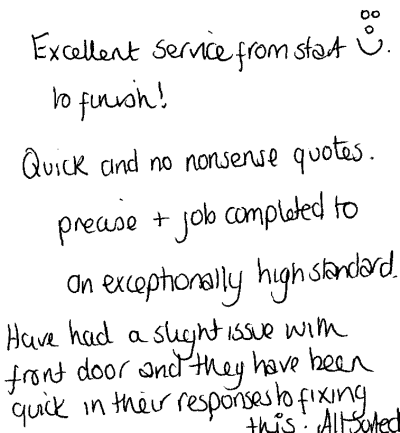 Excellent service from start
to finish!
Quick and no nonsense quotes.
precise + job completed to
an exceptionally high standard.
Have had a slight issue with
front door and they have been
quick in their responses to fixing
this. All sorted